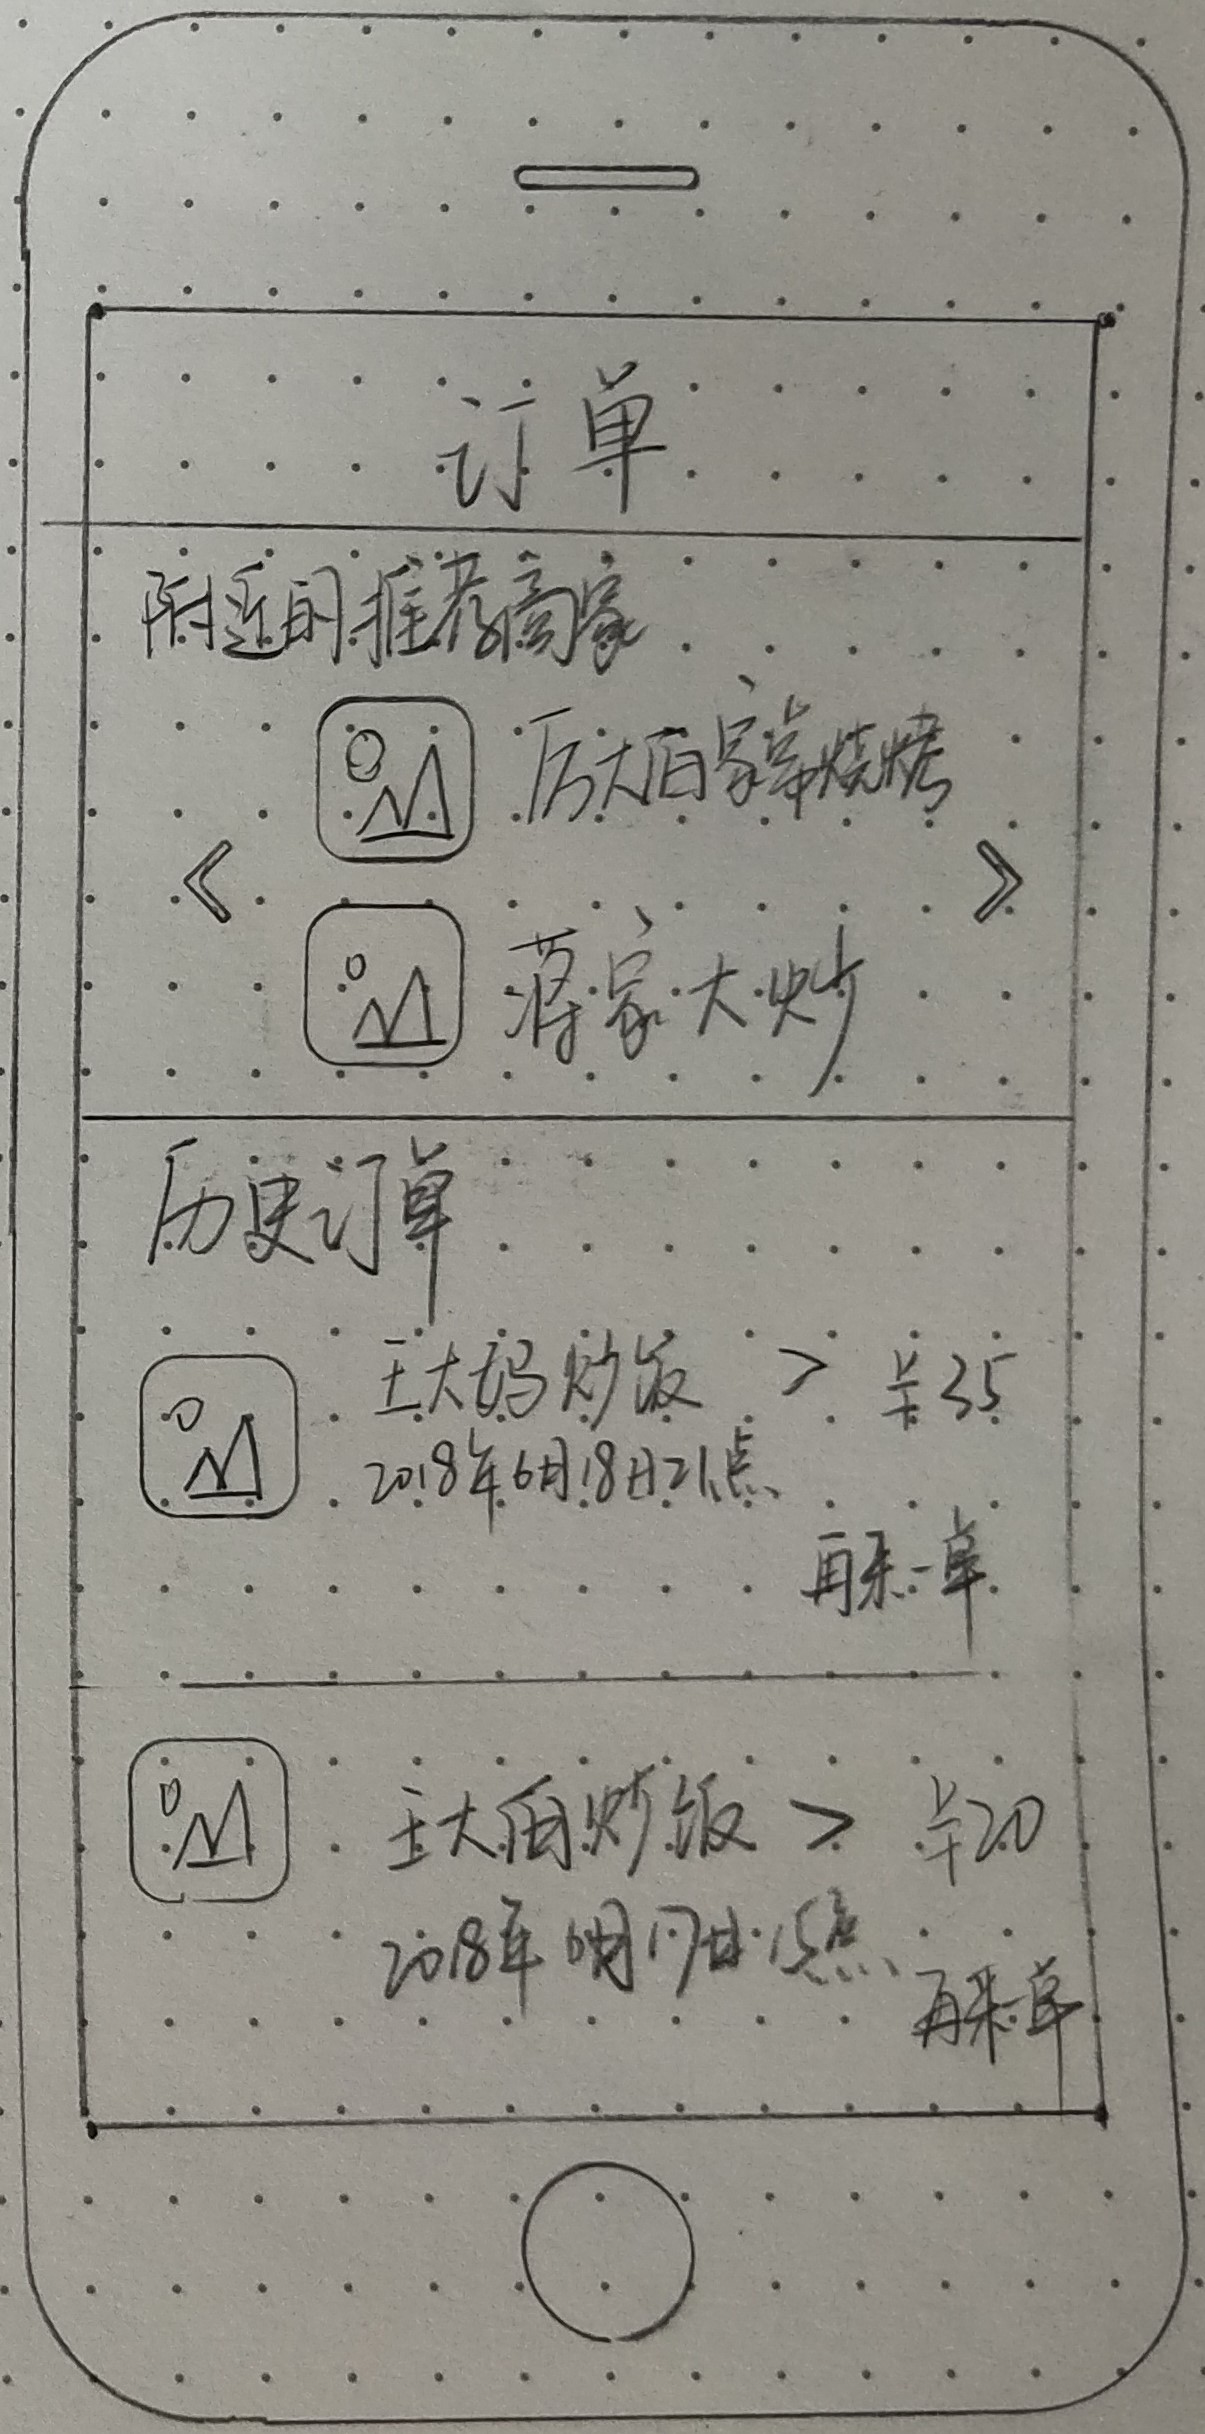 订单
附近的推荐商家
厉大伯家常烧烤
蒋家大炒
历史订单
王大妈炒饭 > ¥35
2018年6月18日21点
再来一单
王大伯炒饭 > ¥20
2018年6月17日15点
再来一单